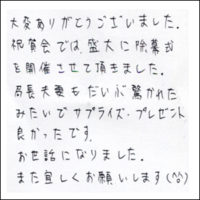 大変ありがとうございました。
祝賀会では、盛大に除幕式
を開催させて頂きました。
局長夫妻もだいぶ驚かれた
みたいでサプライズ・プレゼント
良かったです。
お世話になりました。
また宜しくお願いします(^^)